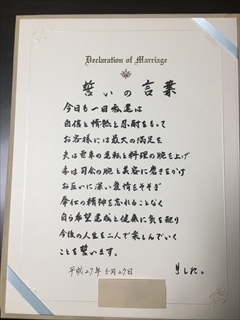 Declaration of Marriage
誓いの言葉
今日も一日私達は
自信と情熱と忍耐をもって
お客様には最大の満足を
夫は電車の運転と料理の腕を上げ
妻は司会の腕と美容に磨きをかけ
お互いに深い愛情をそそぎ
奉仕の精神を忘れることなく
自ら希望達成と健康に気を配り
今後の人生を二人で楽しんでいく
ことを誓います。
平成27年5月27日